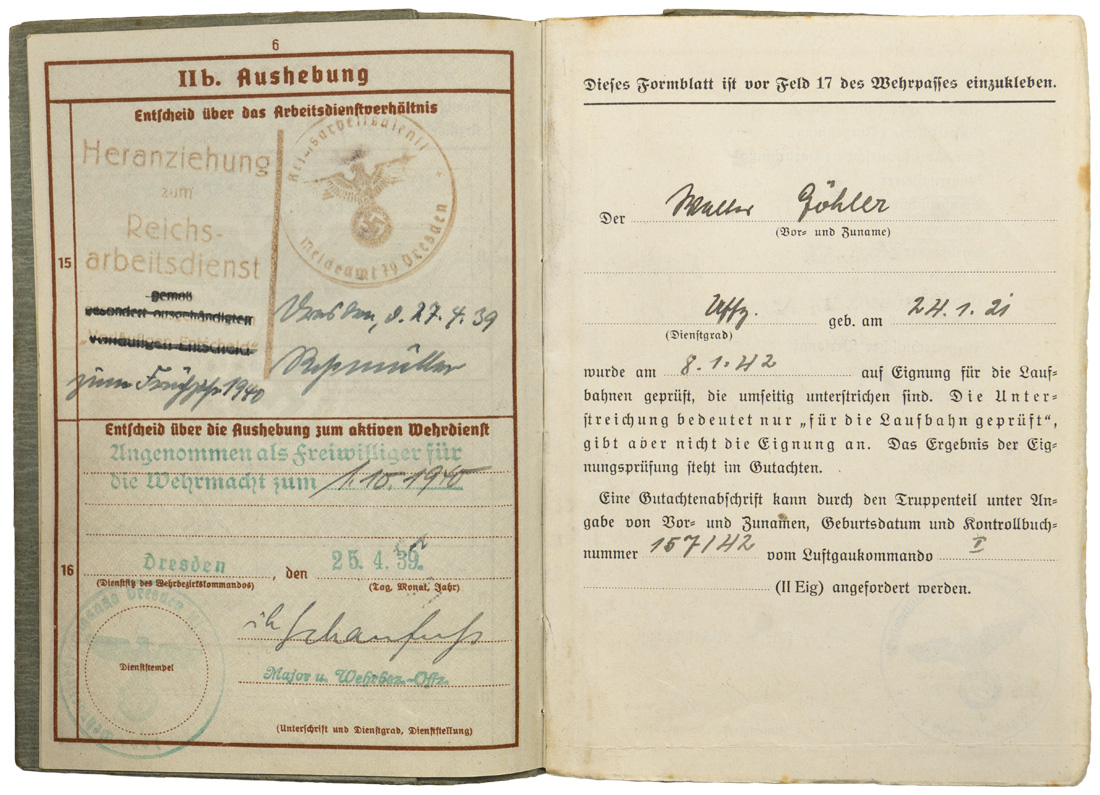 6
IIb. Aushebung
Entscheid über das Arbeitsdienstverhältnis
15
Heranziehung
zum
Reichs-
arbeitsdienst
gemäß
gesondert ausgehändigten
Vorläufigen Entscheids
zum Frühjahr 1940
Reichsarbeitsdienst
Meldeamt 79 Dresden
Dresden, d. 27.4.39
Entscheid über die Aushebung zum aktiven Wehrdienst
16
Angenommen als Freiwilliger für
die Wehrmacht zum 1.10.1940
Dresden, den 25.4.39.
(Dienstsitz des Wehrbezirkskommandos) (Tag, Monat, Jahr)
Dresden
Dienststempel
Major u. Wehrbez.-Offz.
(Unterschrift und Dienstgrad, Dienststellung)
Dieses Formblatt ist vor Feld 17 des Wehrpasses einzukleben.
Der Walter Göhler
(Vor- und Zuname)
Uffz. geb. am 24.1.21
(Dienstgrad)
wurde am 8.1.42 auf Eignung für die Lauf-
bahnen geprüft, die umseitig unterstrichen sind. Die Unter-
streichung bedeutet nur „für die Laufbahn geprüft",
gibt aber nicht die Eignung an. Das Ergebnis der Eig-
nungsprüfung steht im Gutachten.
Eine Gutachtenabschrift kann durch den Truppenteil unter An-
gabe von Vor- und Zunamen, Geburtsdatum und Kontrollbuch-
nummer 157/42 vom Luftgaukommando I
(II Eig) angefordert werden.